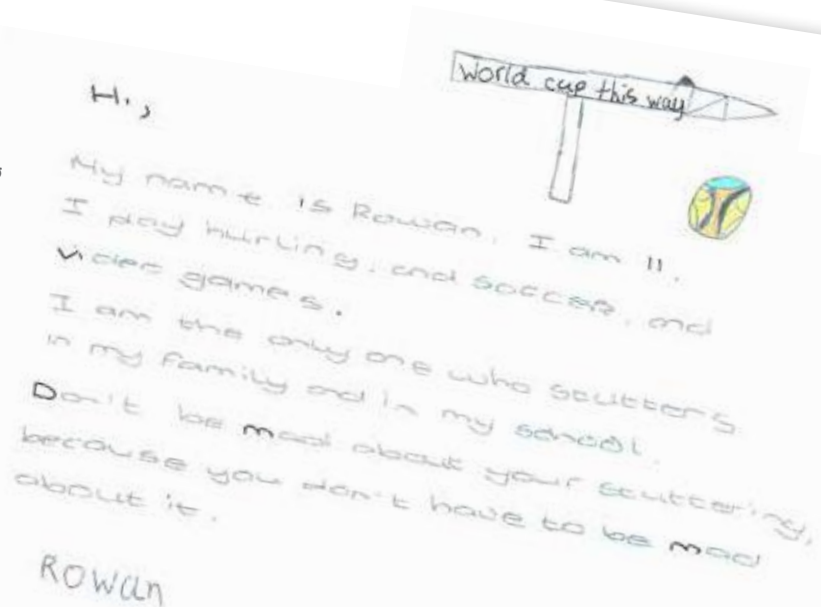 World cup this way
Hi,
My name is Rowan. I am 11.
I play hurling, and soccer, and
video games.
I am the only one who stutters
in my family and in my school.
Don't be mad about your stuttering,
because you don't have to be mad
about it.
Rowan